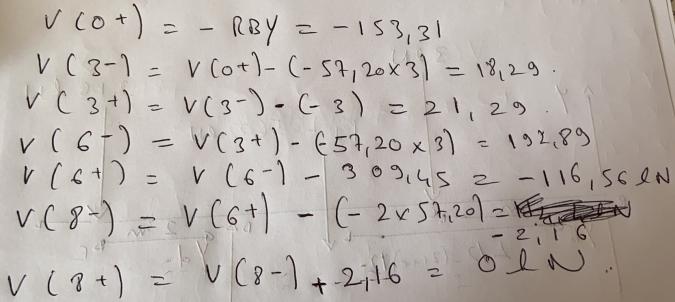 V(0+) = - RBY = -153,31
V(3-) = V(0+)-(-57,20x3) = 18,29.
V(3+) = V(3-) - (-3) = 21,29.
V(6-) = V(3+) - (-57,20 x 3) = 192,89
V(6+) = V(6-) - 309,45 = -116,56 lN
V(8-) = V(6+) - (-2x57,20) =
-2,16
V(8+) = V(8-) + 2,16 = 0 lN.